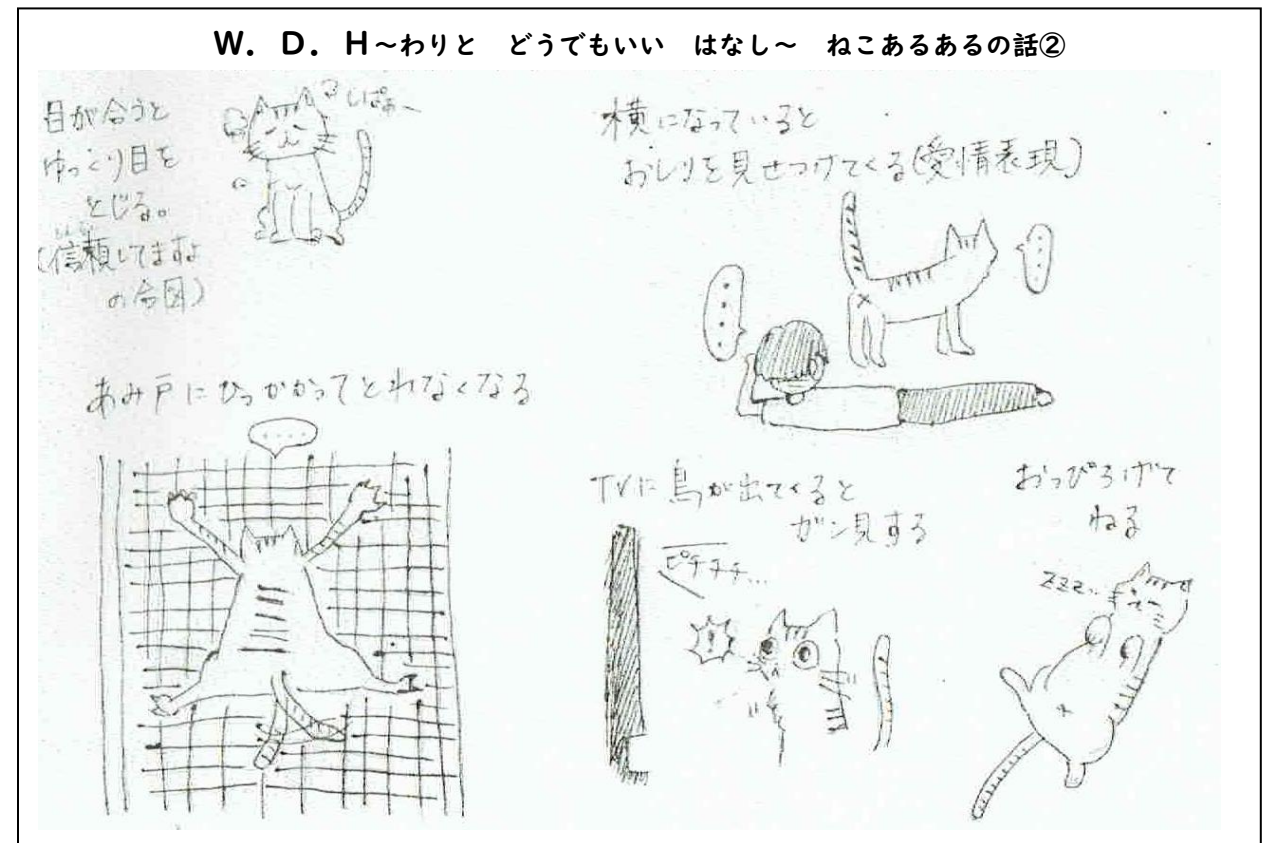 W．D．H～わりと　どうでもいい　はなし～　ねこあるあるの話②
目が合うと
ゆっくり目を
とじる。
しんらい
(信頼してますよ
の合図)
しぱぁ～
横になっていると
おしりを見せつけてくる(愛情表現)
・・・・
・・・・
あみ戸にひっかかってとれなくなる
・・・・
TVに鳥が出てくると
ガン見する
ピチチチ…
！
おっぴろげて
ねる
zzz…